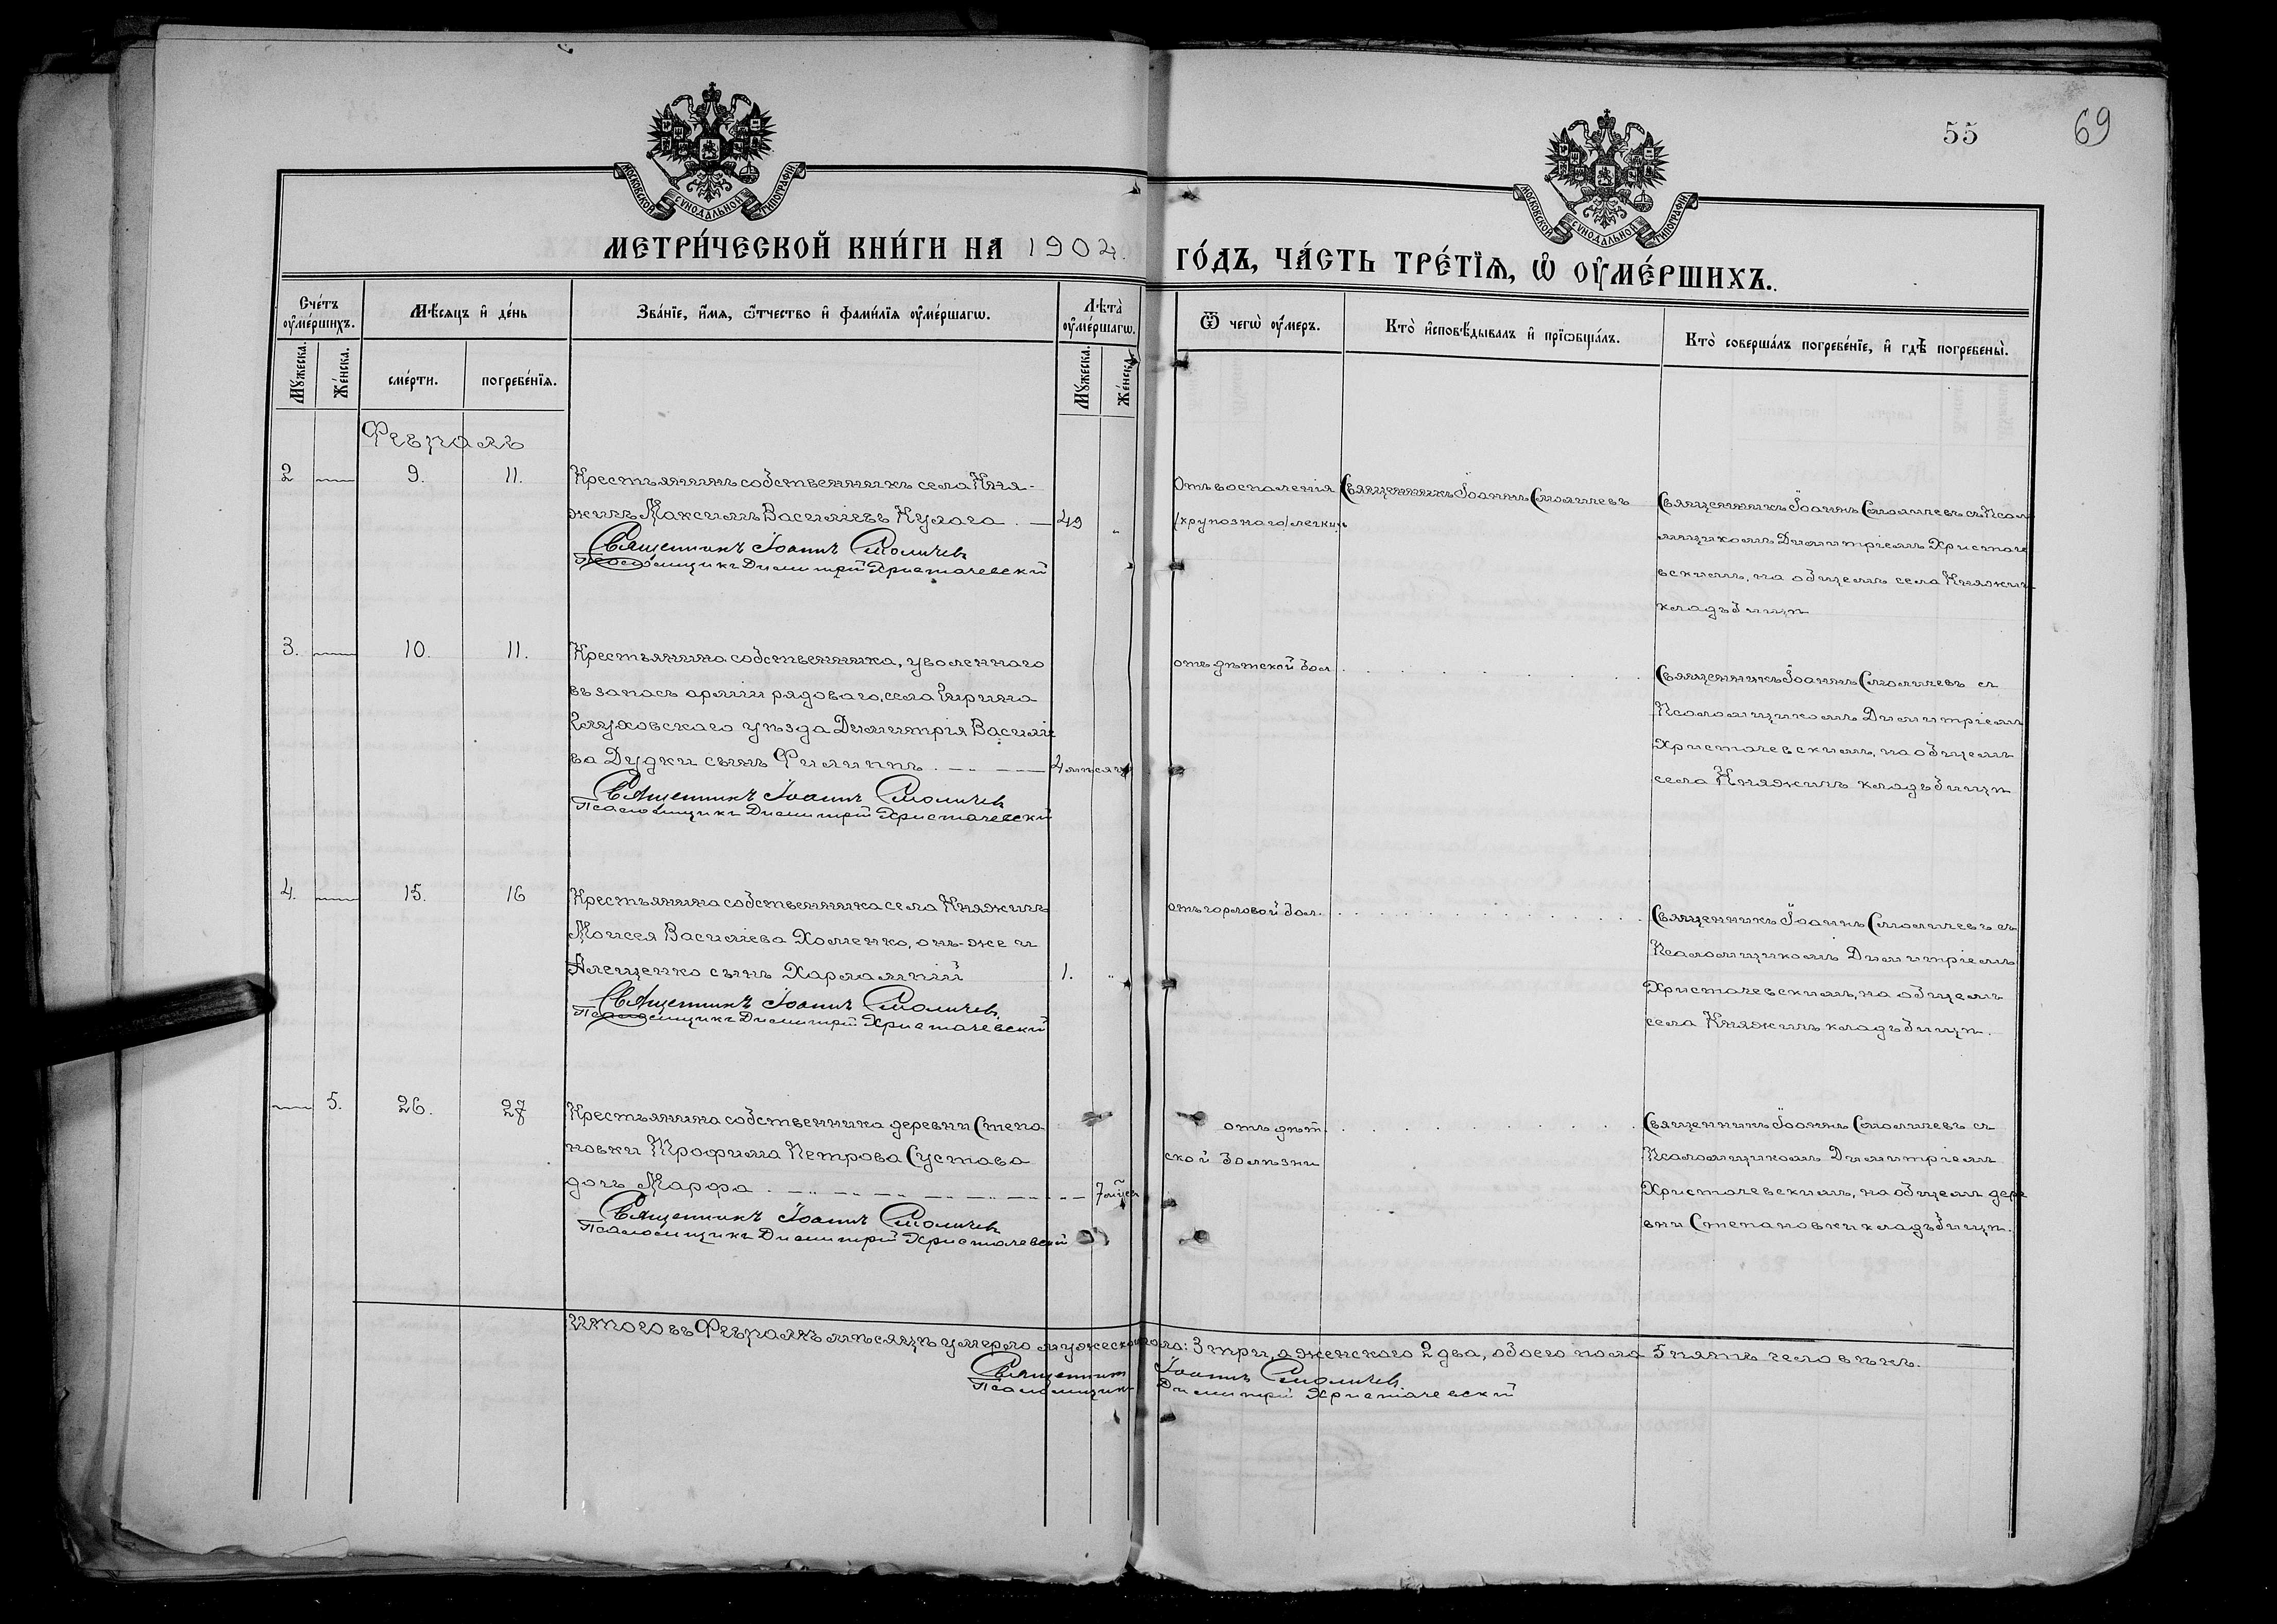 55
69
МОСКОВСКОЙ СѴНОДАЛЬНОЙ ТИПОГРАФІИ.
МОСКОВСКОЙ СѴНОДАЛЬНОЙ ТИПОГРАФІИ.
МЕТРИ́ЧЕСКОЙ КНИ́ГИ НА 1904. ГО́ДЪ, ЧА́СТЬ ТРЕ́ТІѦ, Ѡ҆ ОУ҆МЕ́РШИХЪ.
Сче́тъ оу҆ме́ршихъ.
Мѣ́сяцъ и҆ де́нь
Зва́нїе, и҆́мѧ, ѻ҆́тчество и҆ фами́лїѧ оу҆ме́ршагѡ.
Лѣ́та оу҆ме́ршагѡ.
Ѿ чегѡ̀ оу҆́меръ.
Кто̀ и҆сповѣ́дывалъ и҆ прїѡбща́лъ.
Кто̀ соверша́лъ погребе́нїе, и҆ гдѣ̀ погребены̀.
Мꙋ́жеска.
Же́нска.
сме́рти.
погребе́нїѧ.
Мꙋ́жеска.
Же́нска.
Февраль
2 9. 11.
Крестьянинъ собственникъ села Кня-
жичъ Максимъ Василіевъ Кулага . — 49 „
Священникъ Іоаннъ Смоличевъ
Псаломщикъ Димитрій Христачевскій
Отъ воспаленія
/крупознаго/ легкихъ
Священникъ Іоаннъ Смоличевъ
Священникъ Іоаннъ Смоличевъ съ Псало
мщикомъ Димитріемъ Христаче
вскимъ, на общемъ села Княжичъ
кладбищѣ
3. 10. 11.
Крестьянина собственника, уволеннаго
въ запасъ арміи рядоваго, села Чирина
Глуховскаго уѣзда Димитрія Василіе
ва Дудки сынъ Филиппъ . — 4 мѣсяц
Священникъ Іоаннъ Смоличевъ
Псаломщикъ Димитрій Христачевскій
отъ дѣтской бол.
Священникъ Іоаннъ Смоличевъ съ
Псаломщикомъ Димитріемъ
Христачевскимъ, на общемъ
села Княжичъ кладбищѣ
4. 15. 16
Крестьянина собственника села Княжичъ
Моисея Василіева Хоменко, онъ-же и
Алещенко сынъ Харлампій 1. „
Священникъ Іоаннъ Смоличевъ.
Псаломщикъ Димитрій Христачевскій
отъ горловой бол.
Священникъ Іоаннъ Смоличевъ съ
Псаломщикомъ Димитріемъ
Христачевскимъ, на общемъ
села Княжичъ кладбищѣ.
5. 26. 27
Крестьянина собственника деревни Степа-
новки Трофима Петрова Сустава
дочь Марфа . — 7 мѣсяц
Священникъ Іоаннъ Смоличевъ
Псаломщикъ Димитрій Христачевскій
отъ дѣт
ской болѣзни
Священникъ Іоаннъ Смоличевъ съ
Псаломщикомъ Димитріемъ
Христачевскимъ, на общемъ дере
вни Степановки кладбищѣ.
Итого въ Февралѣ мѣсяцѣ умерло мужескаго пола: 3 три, а женскаго 2 два, обоего пола 5 пять человѣкъ.
Священникъ Іоаннъ Смоличевъ
Псаломщикъ Димитрій Христачевскій